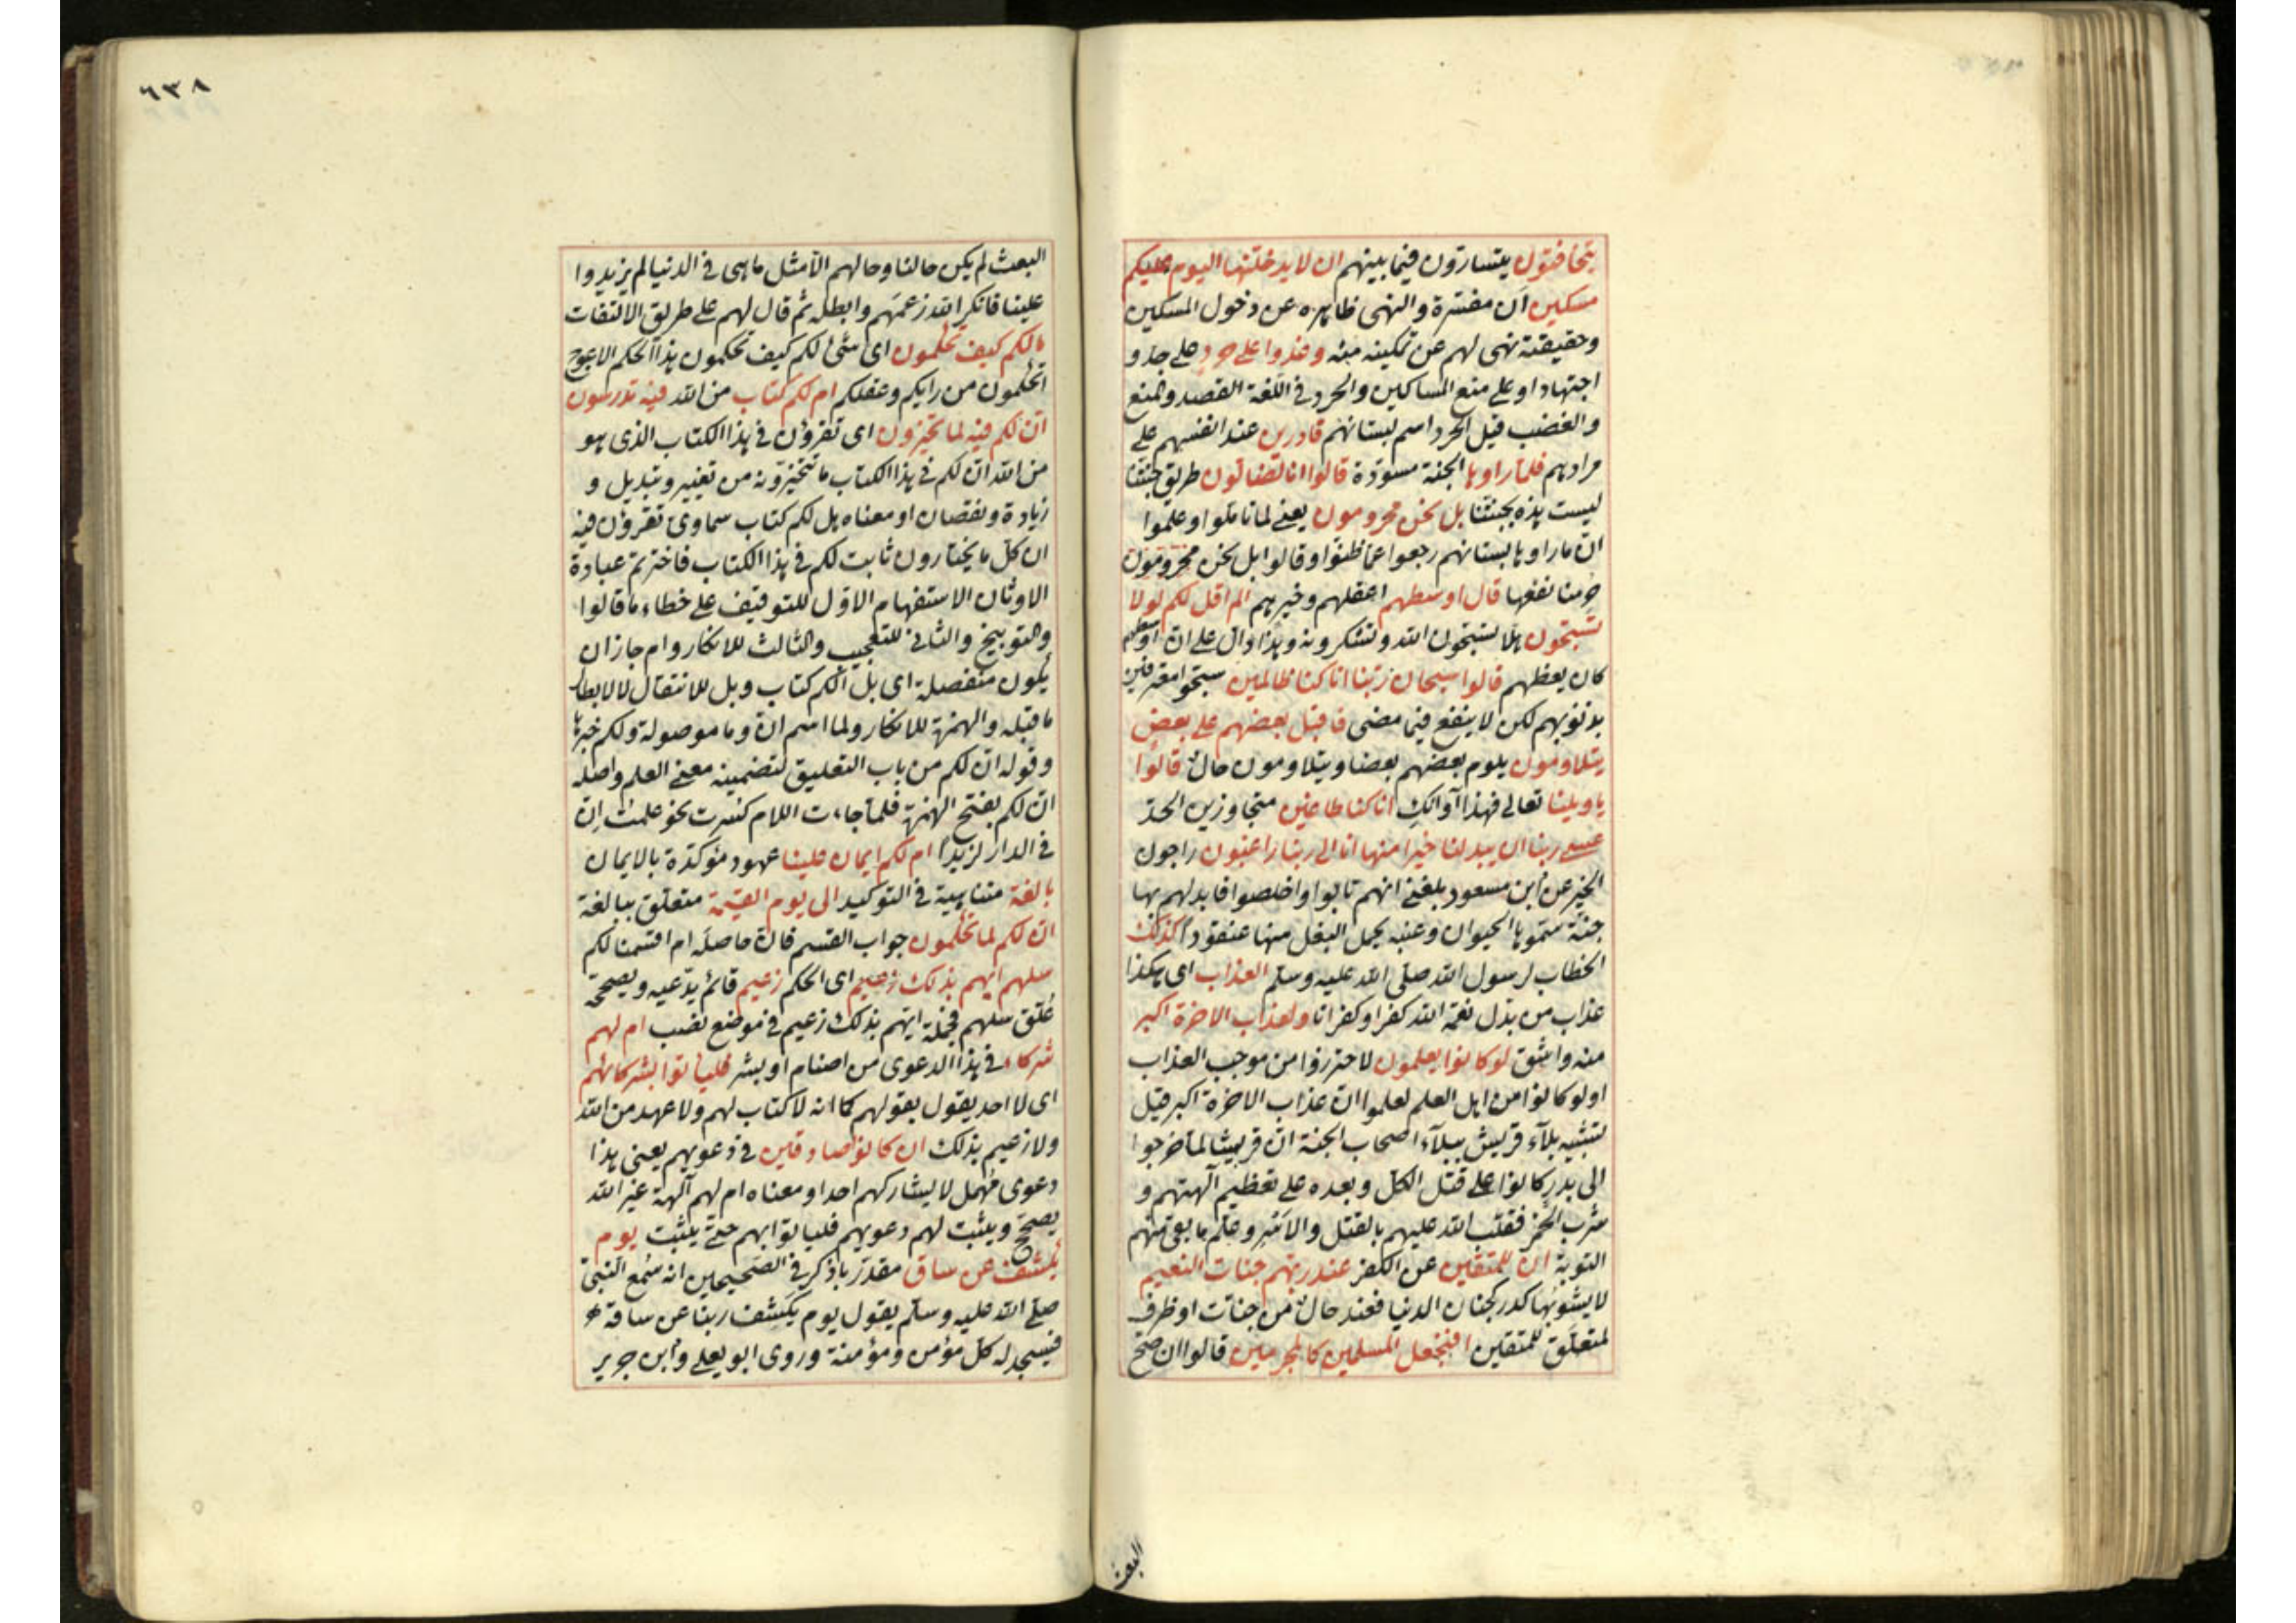 يتخافتون يتسارّون فيما بينهم ان لا يدخلنها اليوم عليكم
مسكين ان مفسّرة والنهى ظاهره عن دخول المسكين
وحقيقته نهى لهم عن تمكينه منه وغدوا على حرد على جد و
اجتهاد او على منع المساكين والحرد فى اللغة القصد والمنع
والغضب قيل الحرد اسم لبستانهم قادرين عند انفسهم على
مرادهم فلما راوها الجنة مسوّدة قالوا انا لضالون طريق جنتنا
ليست هذه بجنتنا بل نحن محرومون يعنى لما تاملوا وعلموا
ان ما راوها بستانهم رجعوا عما ظنوا وقالوا بل نحن محرومون
حرمنا نفعها قال اوسطهم اعقلهم وخيرهم الم اقل لكم لولا
تسبحون هلا تسبحون الله وتشكرونه وهذا دال على ان اوسطهم
كان يعظهم قالوا سبحان ربنا انا كنا ظالمين سبحوا معترفين
بذنوبهم لكن لا ينفع فيما مضى فاقبل بعضهم على بعض
يتلاومون يلوم بعضهم بعضا ويتلاومون حال قالوا
يا ويلنا تعالى فهذا آوانك انا كنا طاغين متجاوزين الحدّ
عسى ربنا ان يبدلنا خيرا منها انا الى ربنا راغبون راجون
الخير عن ابن مسعود بلغنى انهم تابوا واخلصوا فابدلهم بها
جنة سمّوها الحيوان وعنبه يحمل البغل منها عنقودا كذلك
الخطاب لرسول الله صلى الله عليه وسلم العذاب اى هكذا
عذاب من بدل نعمة الله كفرا وكفرانا ولعذاب الاخرة اكبر
منه واشق لو كانوا يعلمون لاحترزوا من موجب العذاب
او لو كانوا من اهل العلم لعلموا ان عذاب الاخرة اكبر قيل
تشبيه بلآء قريش ببلآء اصحاب الجنة ان قريشا لما خرجوا
الى بدر كانوا على قتل الكل وبعده على تعظيم آلهتهم و
شرب الخمر فقلب الله عليهم بالقتل والاسر وعلم ما بقى منهم
التوبة ان للمتقين عن الكفر عند ربهم جنات النعيم
لا يشوبها كدر كجنان الدنيا فعند حال من جنات او ظرف
لمتعلق للمتقين افنجعل المسلمين كالمجرمين قالوا ان صحّ
البعث
٦٣٨
البعث لم يكن حالنا وحالهم الا مثل ما هى فى الدنيا لم يزيدوا
علينا فانكر الله زعمهم وابطله ثم قال لهم على طريق الالتفات
ما لكم كيف تحكمون اى شئ لكم كيف تحكمون هذا الحكم الاعوج
اتحكمون من رايكم وعقلكم ام لكم كتاب من الله فيه تدرسون
ان لكم فيه لما تخيرون اى تقرؤن فى هذا الكتاب الذى هو
من الله ان لكم فى هذا الكتاب ما تتخيرونه من تغيير وتبديل و
زيادة ونقصان او معناه هل لكم كتاب سماوى تقرؤن فيه
ان كل ما يختارون ثابت لكم فى هذا الكتاب فاخترتم عبادة
الاوثان الاستفهام الاوّل للتوقيف على خطاء ما قالوا
والتوبيخ والثانى للتعجيب والثالث للانكار وام جاز ان
يكون منفصلة اى بل ألكم كتاب وبل للانتقال لا لابطال
ما قبله والهمزة للانكار ولما اسم ان وما موصولة ولكم خبرها
وقوله ان لكم من باب التعليق لتضمينه معنى العلم واصله
ان لكم بفتح الهمزة فلما جاءت اللام كسرت نحو علمت ان
فى الدار لزيدا ام لكم ايمان علينا عهود مؤكدة بالايمان
بالغة متناهية فى التوكيد الى يوم القيمة متعلق ببالغة
ان لكم لما تحكمون جواب القسم فان حاصله ام اقسمنا لكم
سلهم ايهم بذلك زعيم اى الحكم زعيم قائم يدّعيه ويصححه
عُلّق سلهم فجملة ايهم بذلك زعيم فى موضع نصب ام لهم
شركاء فى هذا الدعوى من اصنام او بشر فلياتوا بشركائهم
اى لا احد يقول بقولهم كما انه لا كتاب لهم ولا عهد من الله
ولا زعيم بذلك ان كانوا صادقين فى دعويهم يعنى هذا
دعوى مهمل لا يشاركهم احد او معناه ام لهم آلهة غير الله
يصحّح ويثبت لهم دعويهم فلياتوا بهم حتى يثبت يوم
يكشف عن ساق مقدر باذكر فى الصحيحين انه سُمع النبى
صلى الله عليه وسلم يقول يوم يكشف ربنا عن ساقه
فيسجد له كل مؤمن ومؤمنة وروى ابو يعلى وابن جرير